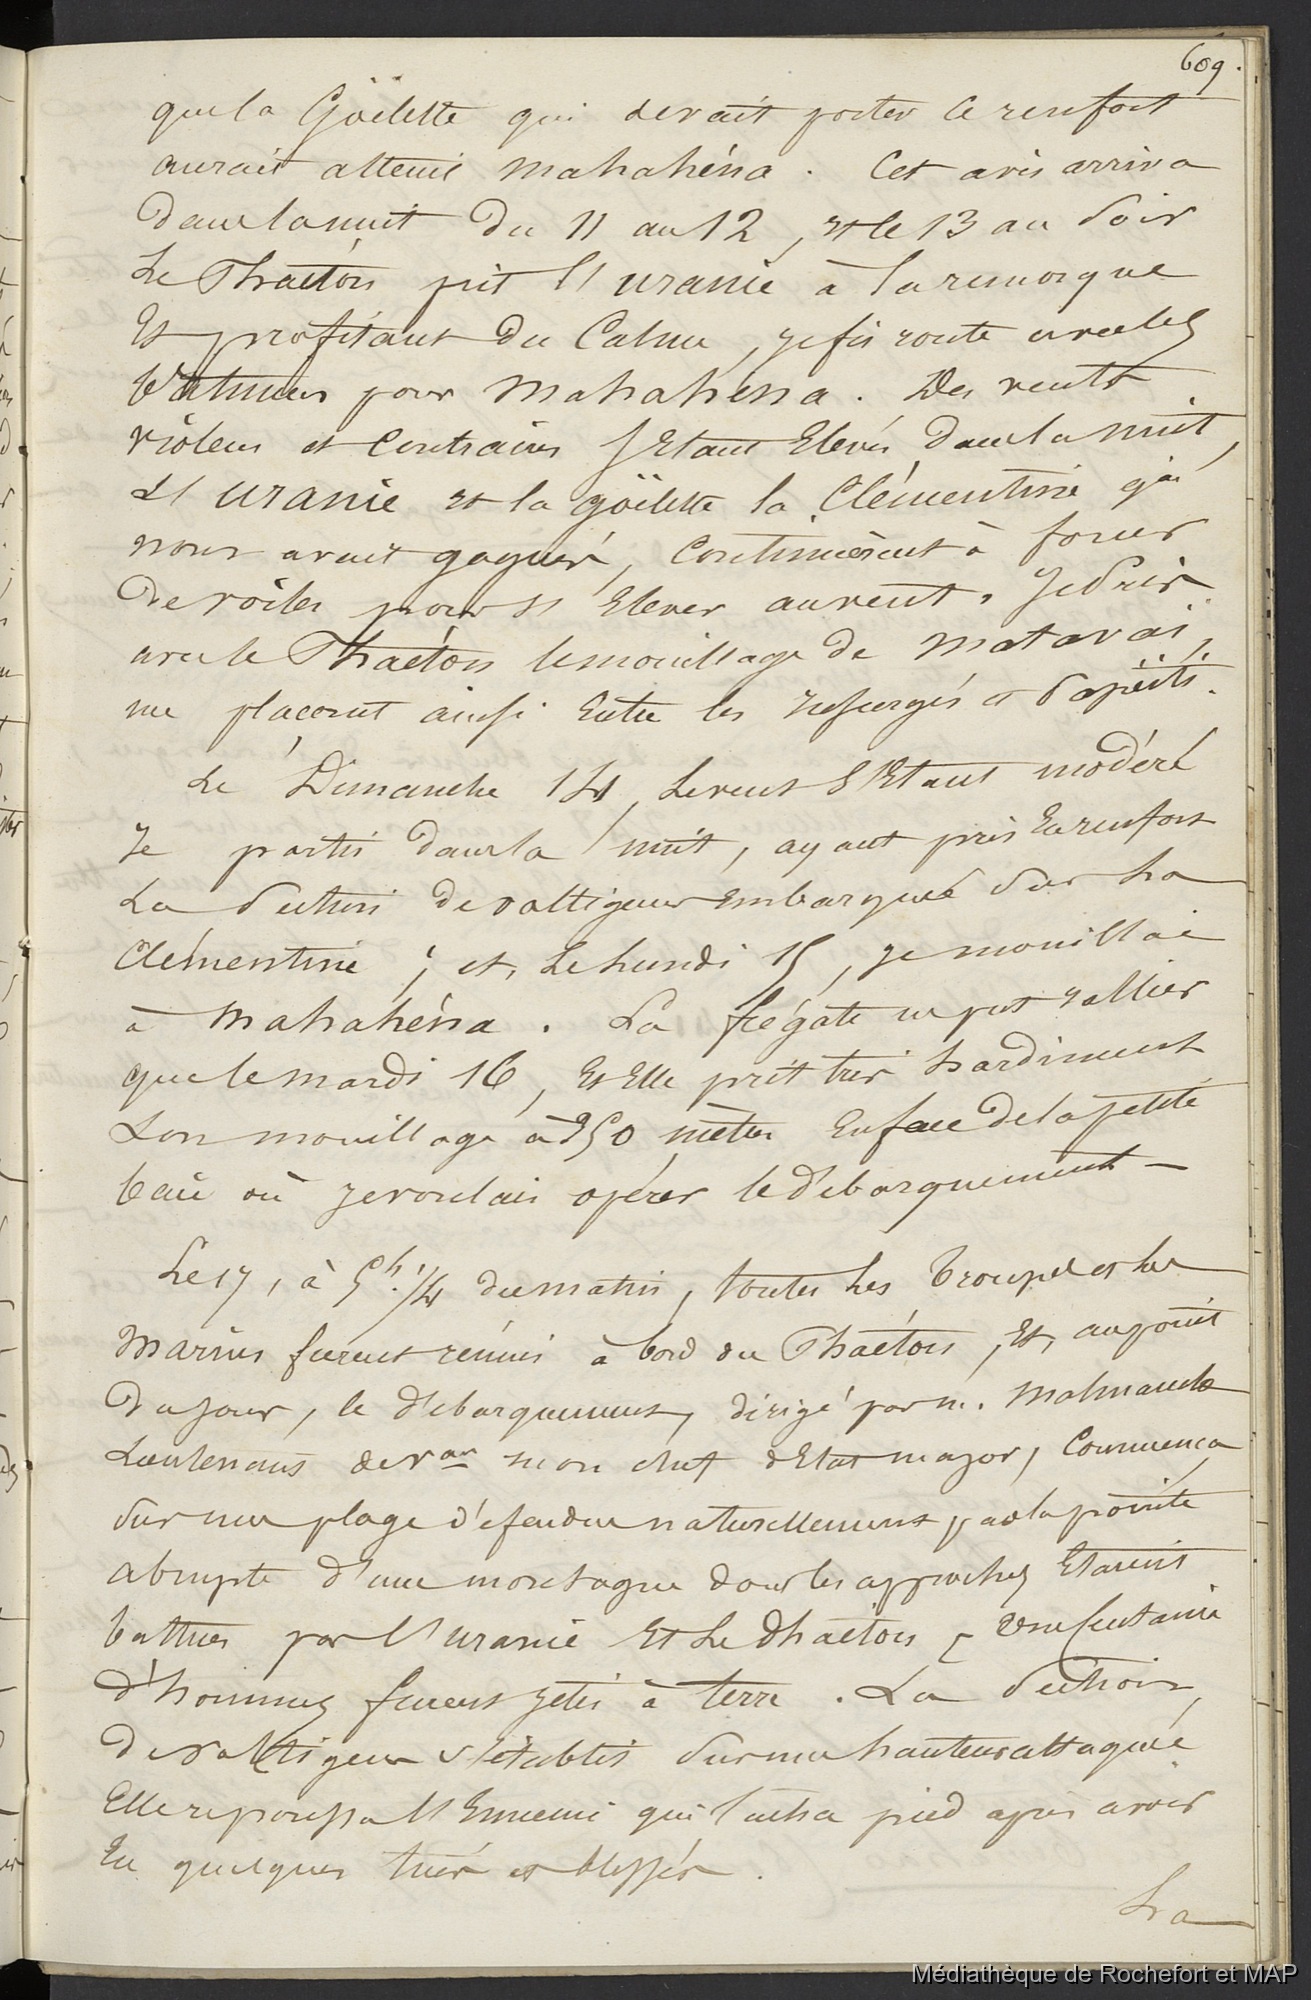 609.
que la Göelette qui devait porter ce renfort
aurait atteint Mahahéna. Cet avis arriva
dans la nuit du 11 au 12, et le 13 au soir
Le Phaéton prit l'Uranie à la remorque
Et profitant du Calme, je fis route avec les
Bâtimens pour Mahahéna. Des vents
violens et Contraires s'Etant Elevés dans la nuit,
L'Uranie et la göelette la Clémentine qui
nous avait gagné, Continuèrent à forcer
de voiles pour s'Elever au vent. Je pris
avec le Phaéton le mouillage de Matavaï,
me plaçant ainsi Entre les Insurgés et Papéïti.
Le Dimanche 14, Le vent s'Etant modéré
Je partis dans la nuit, ayant pris En renfort
La Section de voltigeurs embarquée sur La
Clémentine ; et, Le Lundi 15, je mouillai
à Mahahéna. La frégate ne put rallier
que le mardi 16, Et Elle prit très hardiment
Son mouillage à 250 mètres En face de la petite
baie où je voulais opérer le débarquement —
Le 17, à 5h. 1/4 du matin, toutes Les Troupes et Les
Marins furent réunis à bord du Phaéton, Et, au point
du jour, le débarquement, dirigé par M. Malmanche
Lieutenant de Vau mon chef d'Etat major, Commença
sur une plage défendue naturellement par la pointe
abrupte d'une montagne dont les approches Etaient
battues par l'Uranie Et Le Phaéton ; Une Centaine
d'hommes furent jetés à terre. La Section
de voltigeurs s'établit sur une hauteur attaquée
Elle repoussa l'Ennemi qui lacha pied après avoir
Eu quelques tués et blessés.
La
Médiathèque de Rochefort et MAP